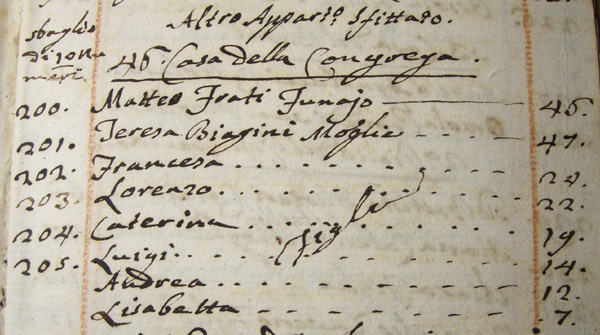 Altro Appar.to Sfittato.
sbaglio
di 10 Nu
meri.
46. Casa della Congrega.
200. Matteo Frati Funajo 46.
201. Teresa Biagini Moglie 47.
202. Francesca 24.
203. Lorenzo 22.
204. Caterina 19.
205. Luigi 14.
Figli
Andrea 12.
Lisabetta 7.